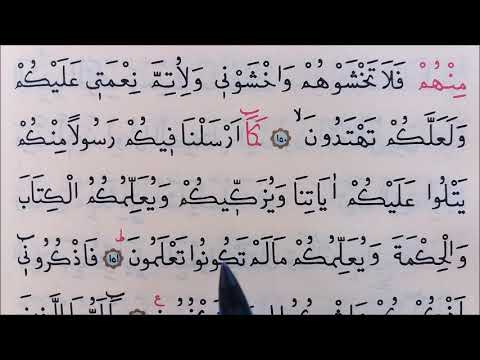 مِنْهُمْ فَلَا تَخْشَوْهُمْ وَاخْشَوْنٖي وَلِاُتِمَّ نِعْمَتٖي عَلَيْكُمْ
وَلَعَلَّكُمْ تَهْتَدُونَۙ ﴿١٥٠﴾ كَمَٓا اَرْسَلْنَا فٖيكُمْ رَسُولًا مِنْكُمْ
يَتْلُوا عَلَيْكُمْ اٰيَاتِنَا وَيُزَكّٖيكُمْ وَيُعَلِّمُكُمُ الْكِتَابَ
وَالْحِكْمَةَ وَيُعَلِّمُكُمْ مَالَمْ تَكُونُوا تَعْلَمُونَۜ ﴿١٥١﴾ فَاذْكُرُونٖٓي